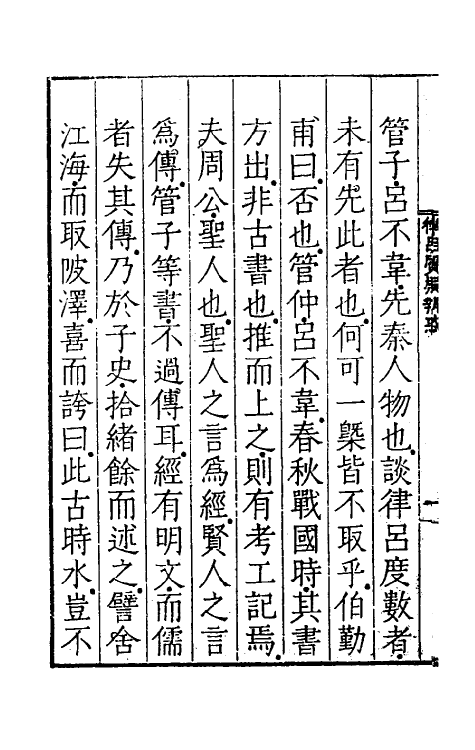 管子呂不韋先秦人物也談律呂度數者
未有先此者也何可一槩皆不取乎伯勤
甫曰否也管仲呂不韋春秋戰國時其書
方出非古書也推而上之則有考工記焉
夫周公聖人也聖人之言爲經賢人之言
爲傳管子等書不過傳耳經有明文而儒
者失其傳乃於子史拾緒餘而述之譬舍
江海而取陂澤喜而誇曰此古時水豈不